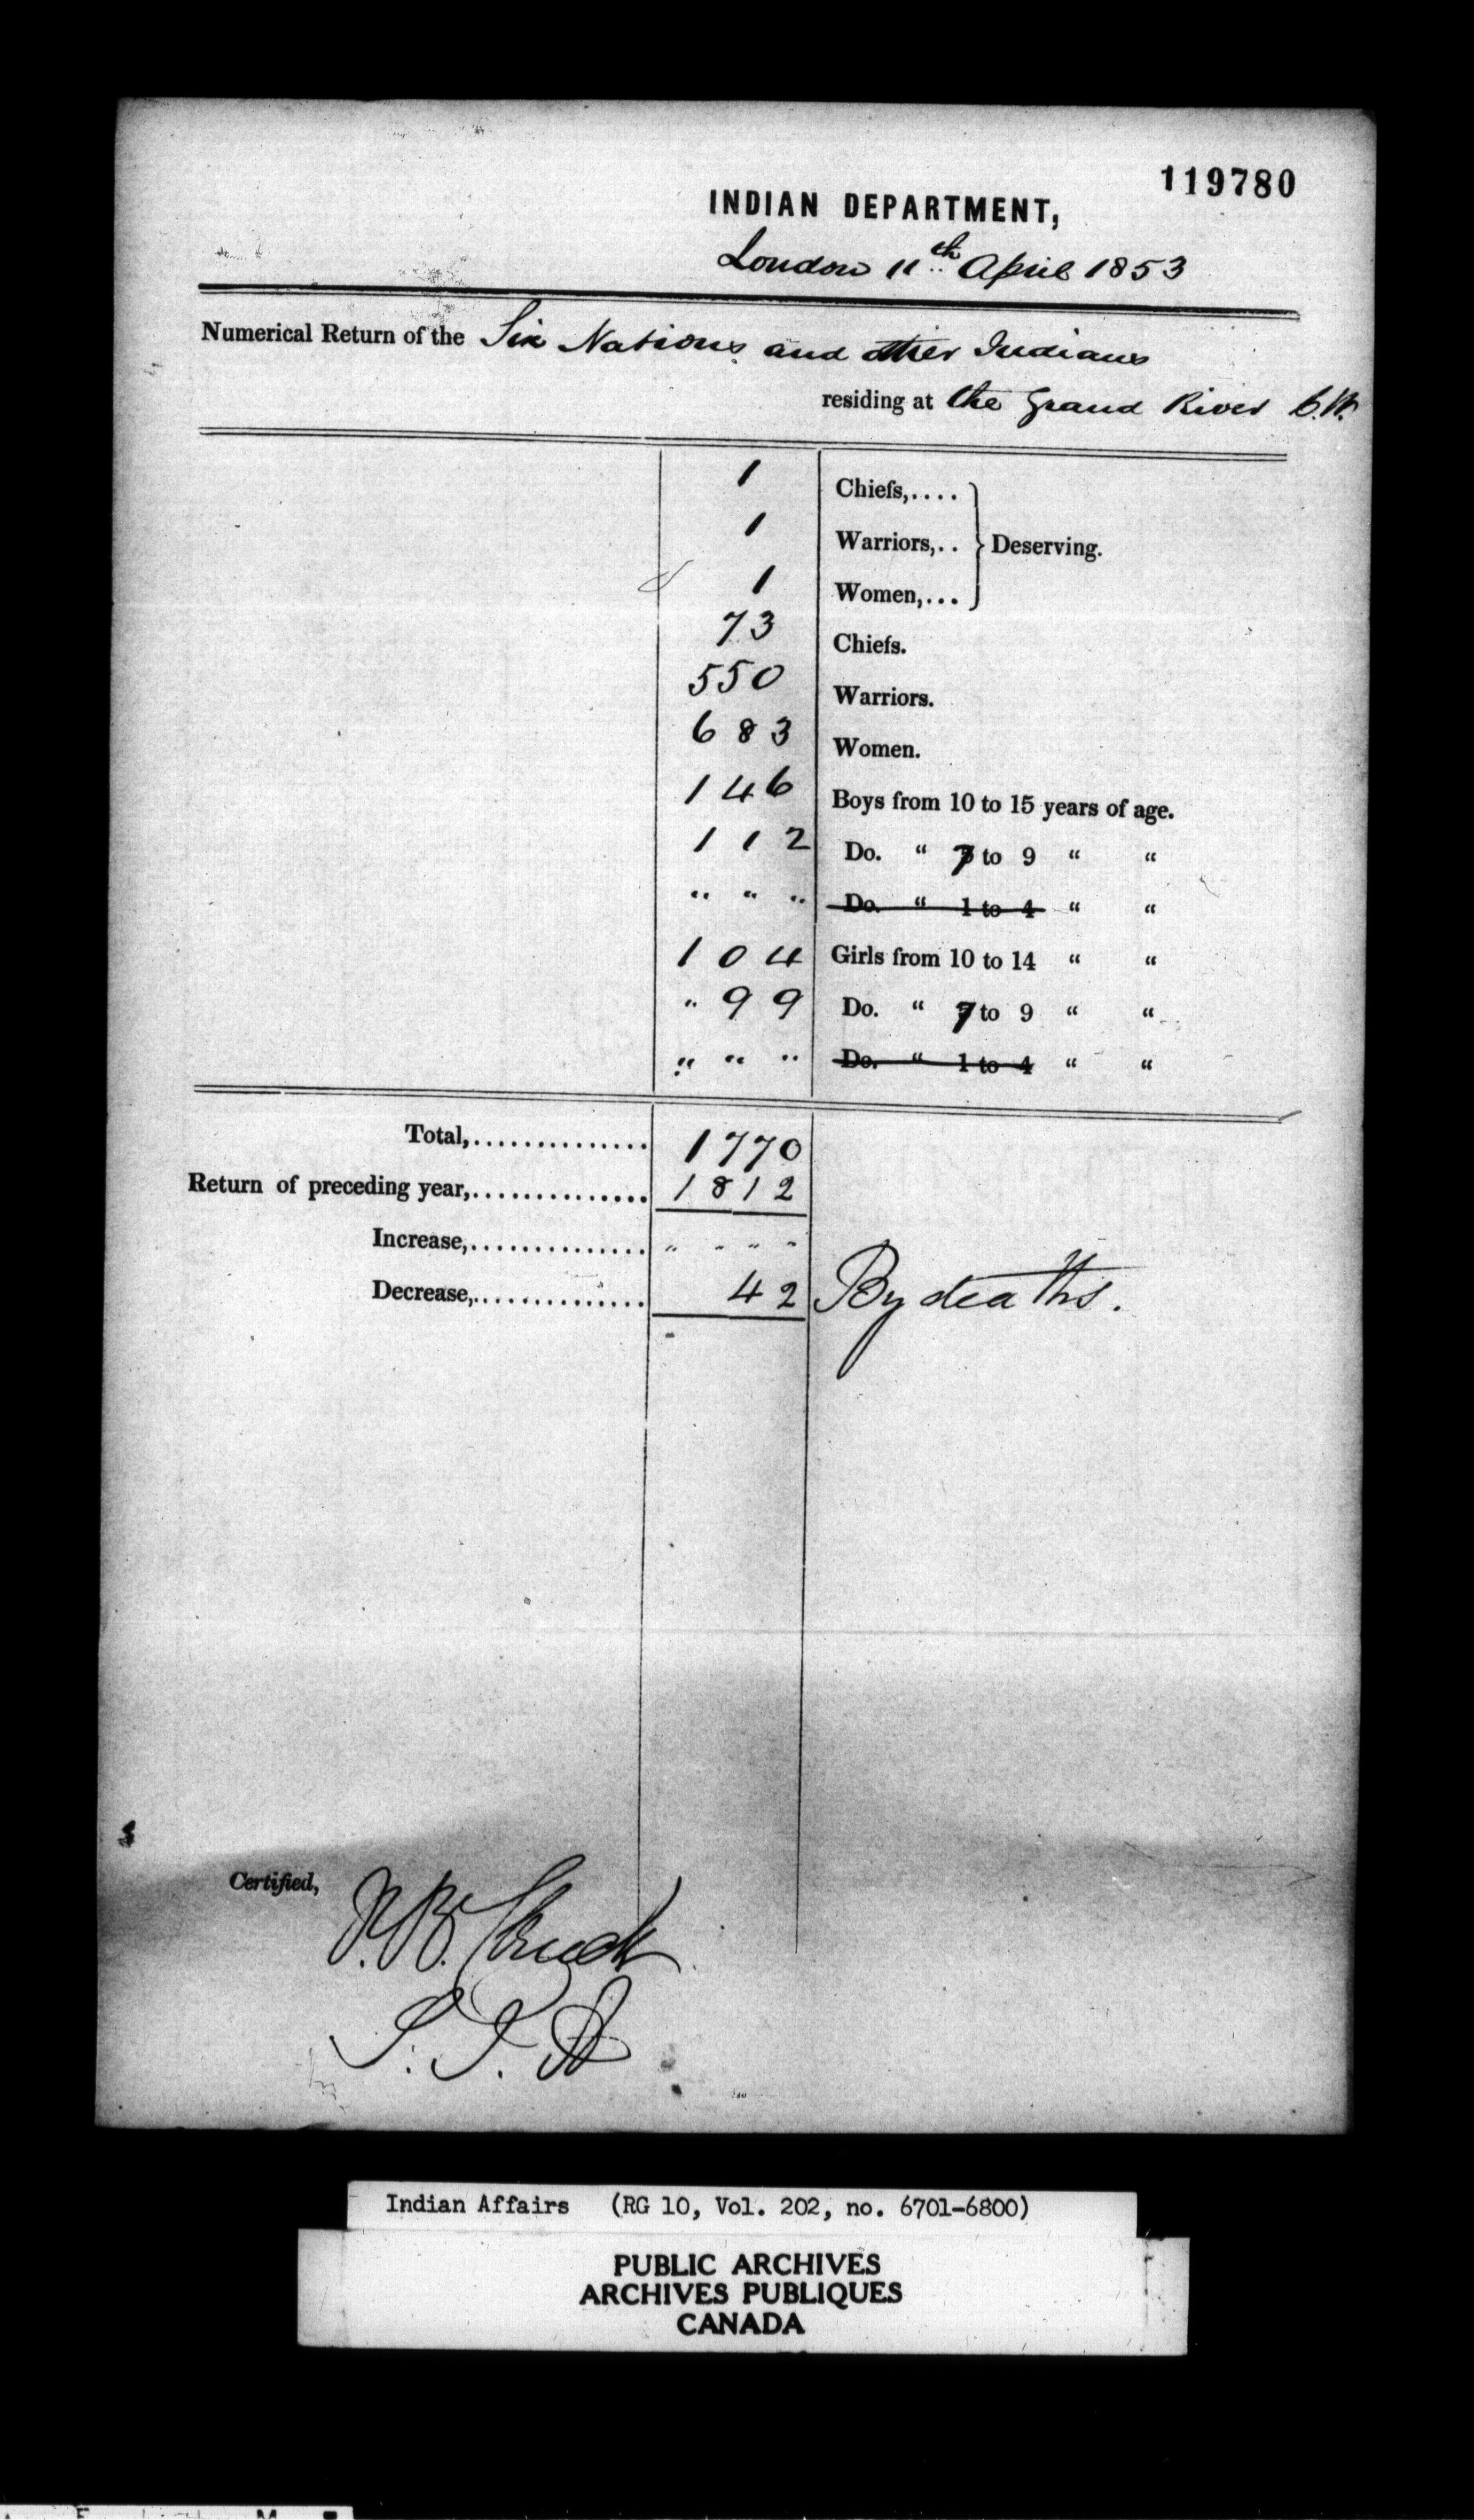 119780
INDIAN DEPARTMENT,
London 11th April 1853
Numerical Return of the Six Nations and other Indians
residing at the Grand River C.W.
1 Chiefs,....
1 Warriors,.. } Deserving.
1 Women,...
73 Chiefs.
550 Warriors.
683 Women.
146 Boys from 10 to 15 years of age.
112 Do. “ 7 to 9 “ “
" " " Do. “ 1 to 4 “ “
104 Girls from 10 to 14 “ “
" 99 Do. “ 7 to 9 “ “
" " " Do. “ 1 to 4 “ “
Total,.............. 1770
Return of preceding year,.............. 1812
Increase,.............. " " " "
Decrease,.............. 42 By deaths.
Certified,
S. I. A
Indian Affairs (RG 10, Vol. 202, no. 6701-6800)
PUBLIC ARCHIVES
ARCHIVES PUBLIQUES
CANADA